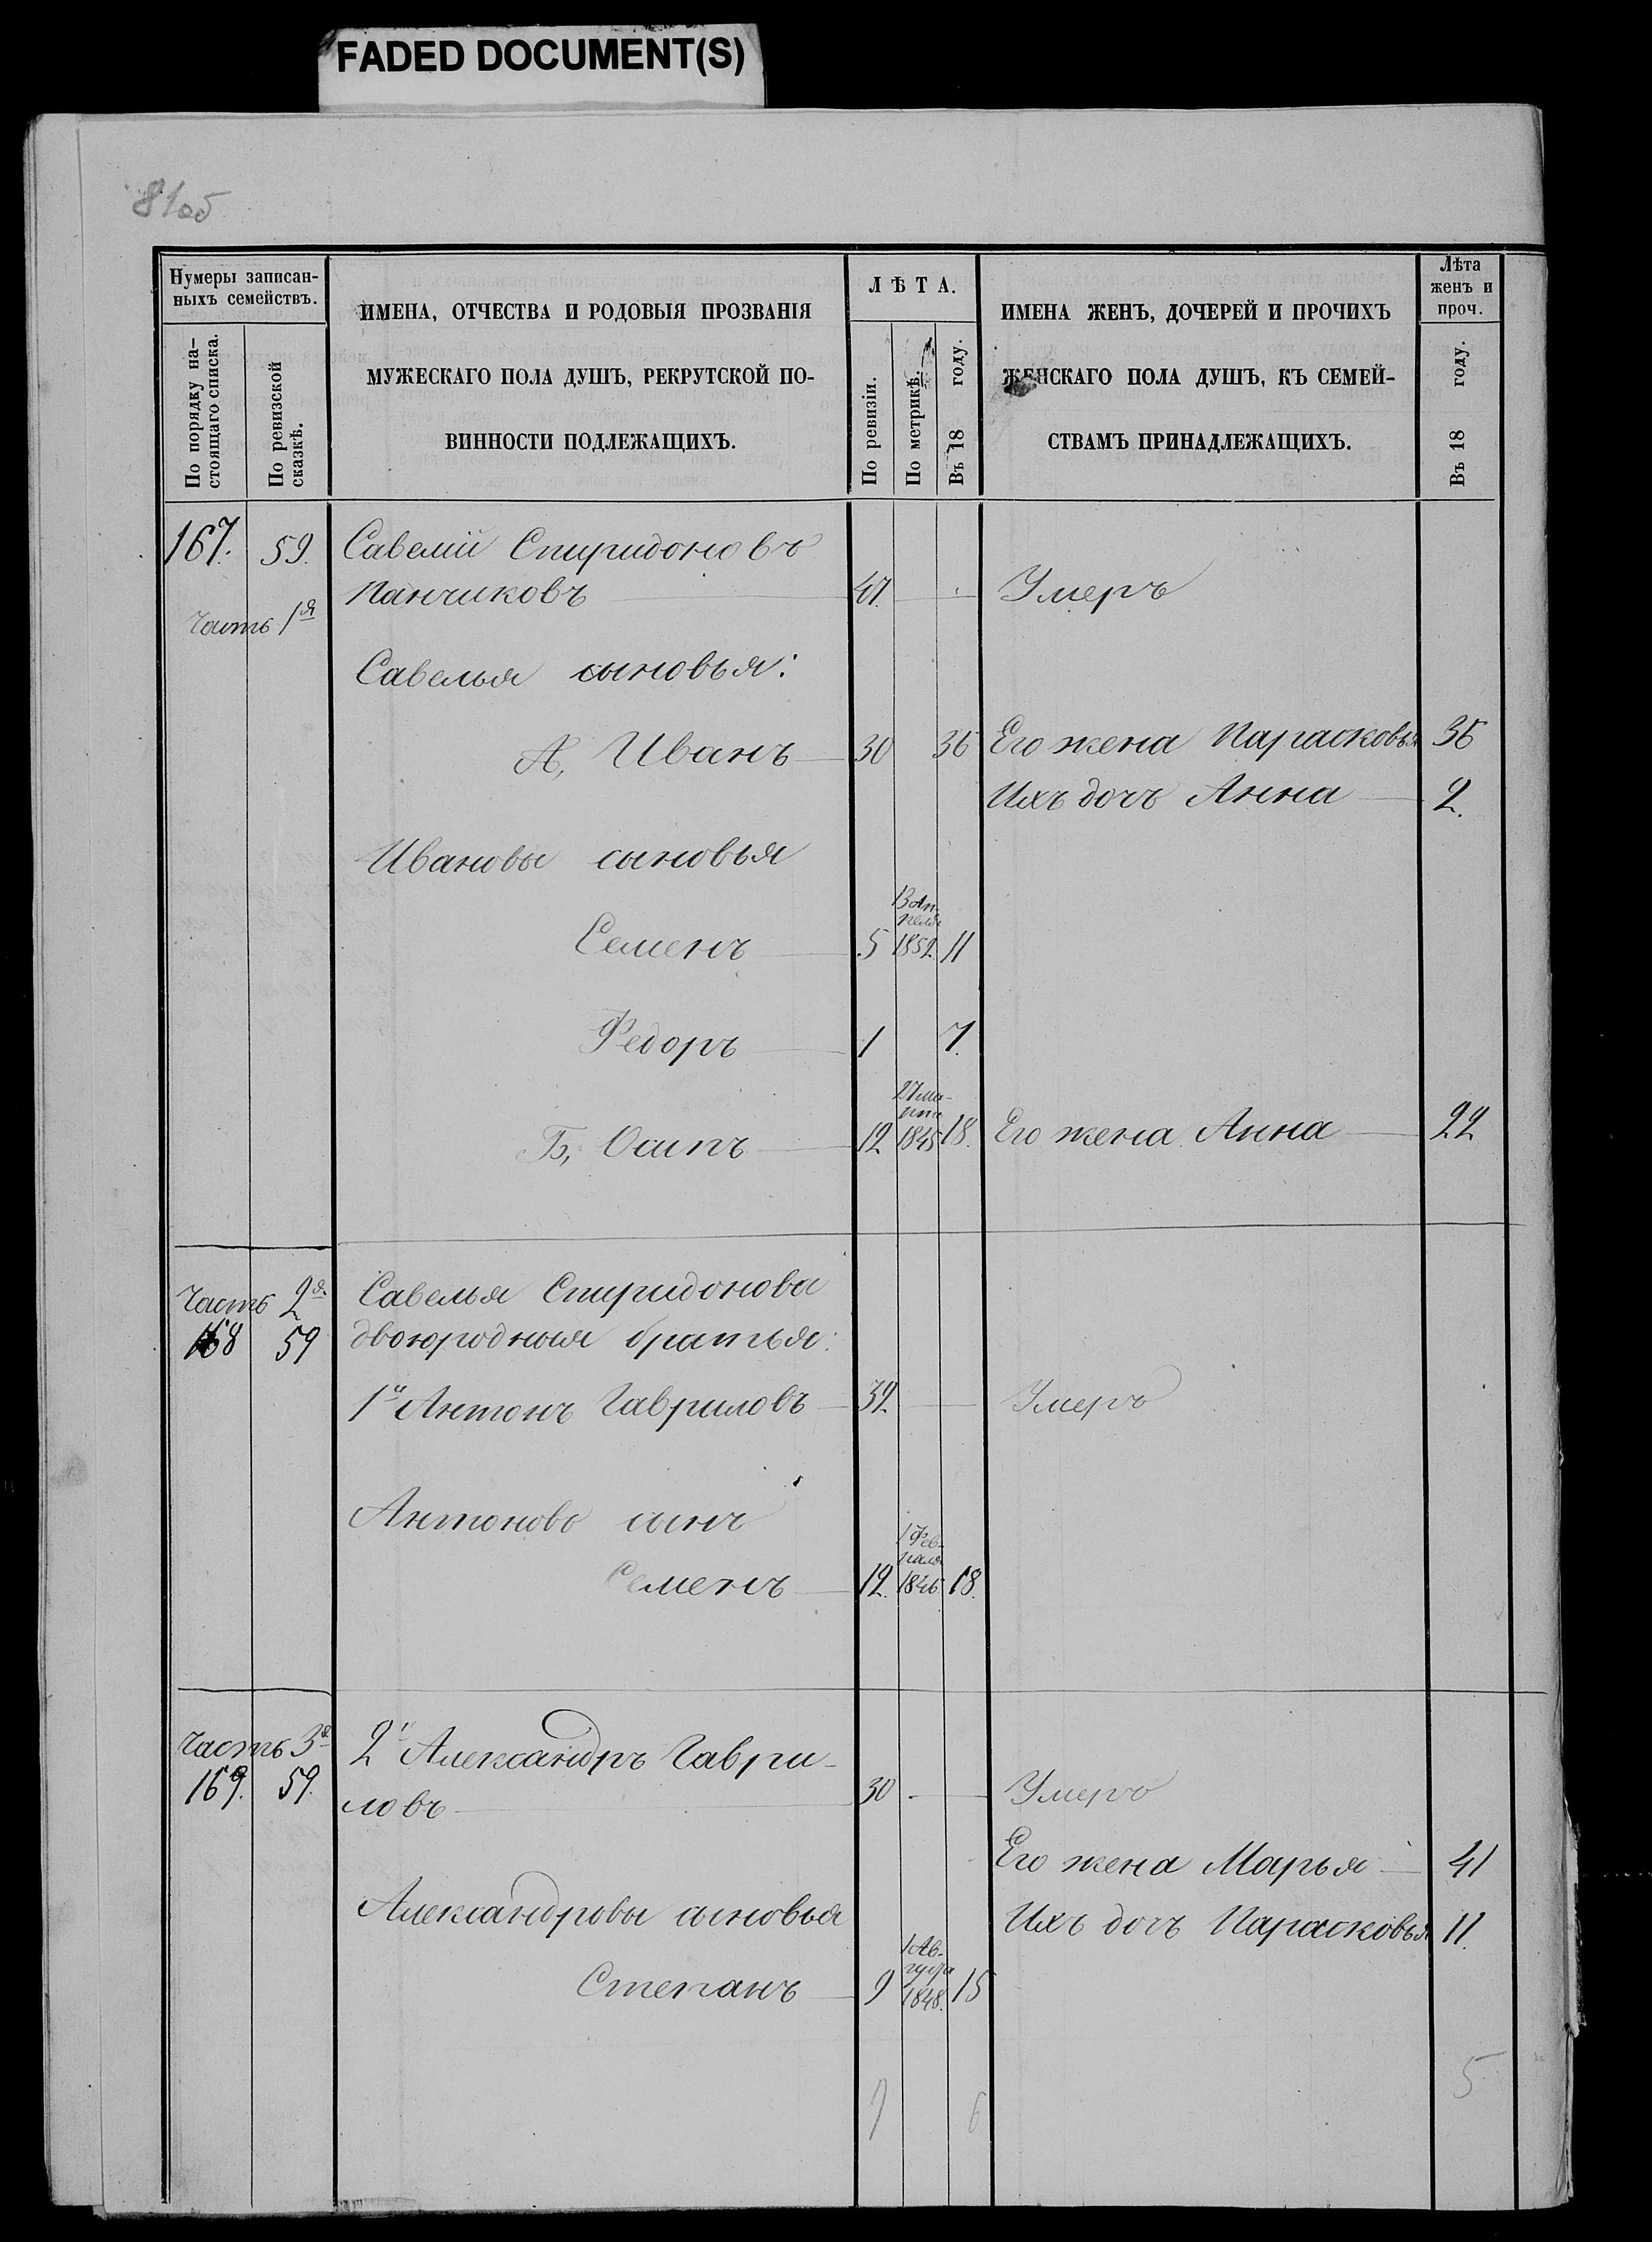 FADED DOCUMENT(S)
81об
Нумеры записан-
ныхъ семействъ.
По порядку на-
стоящаго списка.
По ревизской
сказкѣ.
ИМЕНА, ОТЧЕСТВА И РОДОВЫЯ ПРОЗВАНІЯ
МУЖЕСКАГО ПОЛА ДУШЪ, РЕКРУТСКОЙ ПО-
ВИННОСТИ ПОДЛЕЖАЩИХЪ.
ЛѢТА.
По ревизіи.
По метрикѣ.
Въ 18 году.
ИМЕНА ЖЕНЪ, ДОЧЕРЕЙ И ПРОЧИХЪ
ЖЕНСКАГО ПОЛА ДУШЪ, КЪ СЕМЕЙ-
СТВАМЪ ПРИНАДЛЕЖАЩИХЪ.
Лѣта
женъ и
проч.
Въ 18 году.
167. 59. Савелій Спиридоновъ
Панчиковъ 47. Умеръ
Часть 1я
Савелья сыновья:
А, Иванъ 30 36 Его жена Парасковья 36
Ихъ дочь Анна 2.
Ивановы сыновья
13 Ап-
реля
Семенъ 5 1852. 11
Федоръ 1 7.
27 ма-
рта
Б, Осипъ 12 1845 18. Его жена Анна 22
Часть 2я Савелья Спиридонова
168 59 двоюродныя братья:
1й Антонъ Гавриловъ 32 Умеръ
Антоновъ сынъ
1 Фев-
раля
Семенъ 12. 1846 18.
Часть 3я 2й Александръ Гаври-
169. 59. ловъ 30 Умеръ
Его жена Марья 41
Александровы сыновья Ихъ дочь Парасковья 11.
1 Ав-
густа
Степанъ 9 1848. 15
7 6 5